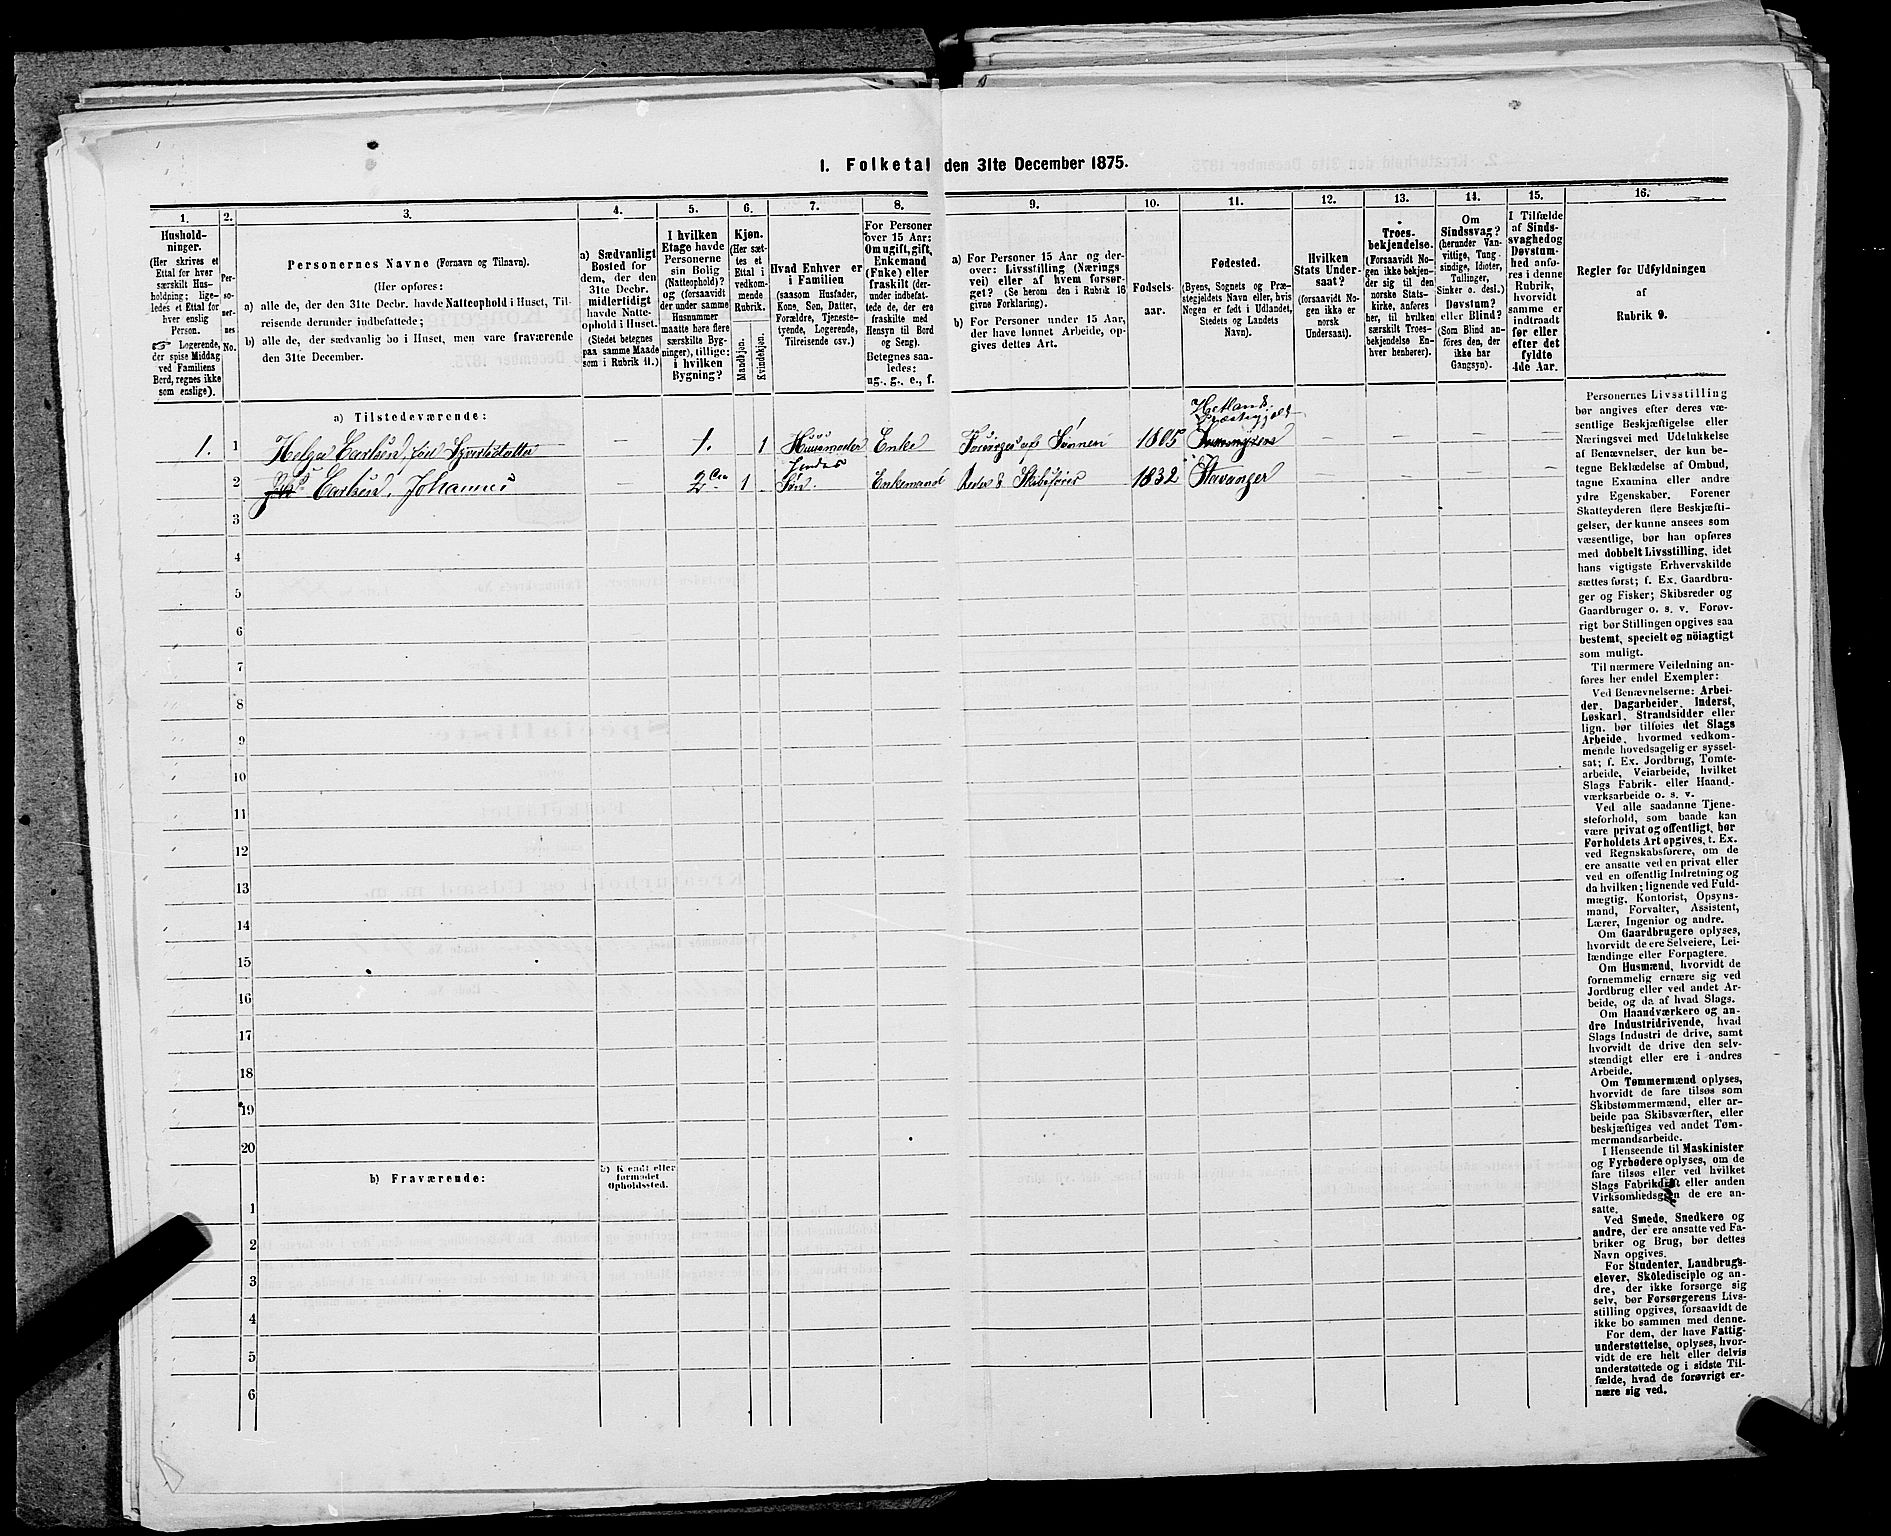 1. Folketal den 31te December 1875.
1.
Hushold-
ninger.
(Her skrives et
Ettal for hver
særskilt Hus-
holdning; lige-
ledes et Ettal for
hver enslig
Person.
☞ Logerende,
der spise Middag
ved Familiens
Bord, regnes ikke
som enslige).
2.
Per-
so-
ner-
nes
No.
3.
Personernes Navne (Fornavn og Tilnavn).
(Her opføres:
a) alle de, der den 31te Decbr. havde Natteophold i Huset, Til-
reisende derunder indbefattede;
b) alle de, der sædvanlig bo i Huset, men vare fraværende
den 31te December.
4.
a) Sædvanligt
Bosted for
dem, der den
31te Decbr.
midlertidigt
havde Natte-
ophold i Huset.
(Stedet betegnes
paa samme Maade
som i Rubrik 11.)
5.
I hvilken
Etage havde
Personerne
sin Bolig
(Natteophold)?
og (forsaavidt
der under samme
Husnummer
maatte høre flere
særskilte Byg-
ninger), tillige:
i hvilken
Bygning?
6.
Kjøn.
(Her sæt-
tes et
Ettal i
vedkom-
mende
Rubrik.
Mandkjøn.
Kvindekjøn.
7.
Hvad Enhver er
i Familien
(saasom Husfader,
Kone, Søn, Datter,
Forældre, Tjeneste-
tyende, Logerende,
Tilreisende csv.)
8.
For Personer
over 15 Aar:
Om ugift, gift,
Enkemand
(Enke) eller
fraskilt (der-
under indbefat-
tede de, der ere
fraskilte med
Hensyn til Bord
og Seng).
Betegnes saa-
ledes:
ug., g., e., f.
9.
a) For Personer 15 Aar og der-
over: Livsstilling (Nærings
vei) eller af hvem forsør-
get? (Se herom den i Rubrik 16
givne Forklaring).
b) For Personer under 15 Aar,
der have lønnet Arbeide, op-
gives dettes Art.
10.
Fødsels-
aar.
11.
Fødested.
(Byens, Sognets og Præ-
stegjeldets Navn eller, hvis
Nogen er født i Udlandet,
Stedets og Landets
Navn).
12.
Hvilken
Stats Under-
saat?
(forsaavidt No-
gen ikke er
norsk
Undersaat).
13.
Troes-
bekjendelse.
(Forsaavidt No-
gen ikke bekjen-
der sig til den
norske Stats-
kirke, anføres
her, til hvilken
særskilt Troes-
bekjendelse En-
hver henhører).
14.
Om
Sindssvag?
(herunder Van-
vittige, Tung-
sindige, Idioter,
Tullinger,
Sinker o. desl.)
Døvstum?
eller Blind?
(Som Blind an-
føres den, der
ikke har
Gangsyn).
15.
I Tilfælde
af Sinds-
svaghed og
Døvstum-
hed anfø-
res i denne
Rubrik,
hvorvidt
samme er
indtraadt
før eller
efter det
fyldte
4de Aar.
16.
Regler for Udfyldningen
af
Rubrik 9.
a) Tilstedeværende:
1. 1 Helga Carlsen, født Syvertsdatter — 1. 1 Huusmoder Enke Forsørges af Sønnen 1805 Hetlands Præstegjeld — — — —
2 Carlsen, Johannes 2den 1 hendes Søn. Enkemand Reder & Skibsfører 1832 Stavanger
3
4
5
6
7
8
9
10
11
12
13
14
15
16
17
18
19
20
b) Fraværende:
b) Kjendt eller
formodet
Opholdssted.
1
2
3
4
5
6
Personernes Livsstilling
bør angives efter deres væ-
sentlige Beskjæftigelse eller
Næringsvei med Udelukkelse
af Benævnelser, der kun be-
tegne Beklædelse af Ombud,
tagne Examina eller andre
ydre Egenskaber. Forener
Skatteyderen flere Beskjæfti-
gelser, der kunne ansees som
væsentlige, bør han opføres
med dobbelt Livsstilling, idet
hans vigtigste Erhvervskilde
sættes først; f. Ex. Gaardbru-
ger og Fisker; Skibsreder og
Gaardbruger o. s. v. Forøv-
rigt bør Stillingen opgives saa
bestemt, specielt og nöiagtigt
som muligt.
Til nærmere Veiledning an-
føres her endel Exempler:
Ved Benævnelserne: Arbei-
der, Dagarbeider, Inderst,
Løskarl, Strandsidder eller
lign. bør tilføies det Slags
Arbeide, hvormed vedkom-
mende hovedsagelig er syssel-
sat; f. Ex. Jordbrug, Tomte-
arbeide, Veiarbeide, hvilket
Slags Fabrik- eller Haand-
værksarbeide o. s. v.
Ved alle saadanne Tjene-
steforhold, som baade kan
være privat og offentligt, bør
Forholdets Art opgives, t. Ex.
ved Regnskabsførere, om de
ere ansatte ved en privat eller
ved en offentlig Indretning og
da hvilken; lignende ved Fuld-
mægtig, Kontorist, Opsyns-
mand, Forvalter, Assistent,
Lærer, Ingeniør og andre.
Om Gaardbrugere oplyses,
hvorvidt de ere Selveiere, Lei-
lændinge eller Forpagtere.
Om Husmænd, hvorvidt de
fornemmelig ernære sig ved
Jordbrug eller ved andet Ar-
beide, og da af hvad Slags.
Om Haandværkere og an-
dre Industridrivende, hvad
Slags Industri de drive, samt
hvorvidt de drive den selv-
stændigt eller ere i andres
Arbeide.
Om Tømmermænd oplyses,
hvorvidt de fare tilsøs som
Skibstømmermænd, eller ar-
beide paa Skibsværfter, eller
beskjæftiges ved andet Tøm-
mermandsarbeide.
I Henseende til Maskinister
og Fyrbødere oplyses, om de
fare tilsøs eller ved hvilket
Slags Fabrikdrift eller anden
Virksomhedsgren de ere an-
satte.
Ved Smede, Snedkere og
andre, der ere ansatte ved Fa-
briker og Brug, bør dettes
Navn opgives.
For Studenter, Landbrugs-
elever, Skoledisciple og an-
dre, der ikke forsørge sig
selv, bør Forsørgerens Livs-
stilling opgives, forsaavidt de
ikke bo sammen med denne.
For dem, der have Fattig-
understøttelse, oplyses, hvor-
vidt de ere helt eller delvis
understøttede og i sidste Til-
fælde, hvad de forøvrigt er-
nære sig ved.